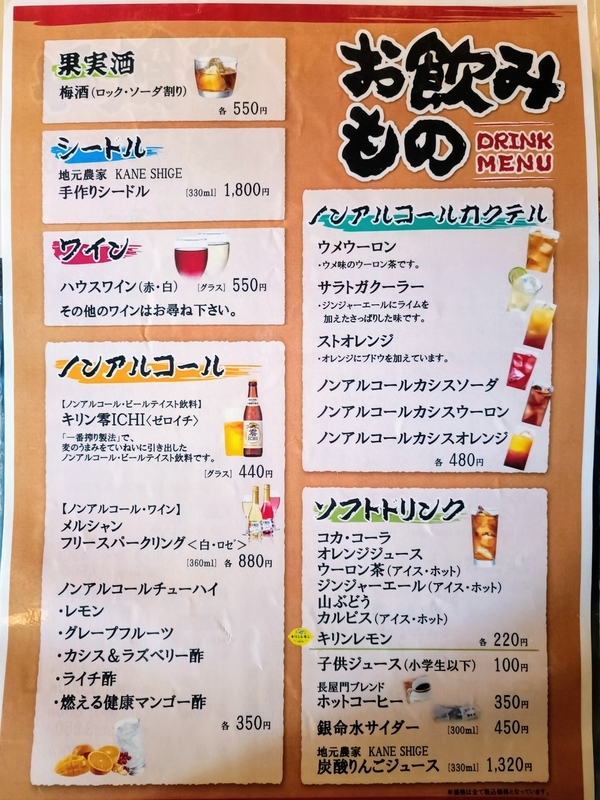 お飲み
もの
DRINK
MENU
果実酒
梅酒(ロック・ソーダ割り)
各 550円
シードル
地元農家 KANE SHIGE
手作りシードル [330ml] 1,800円
ワイン
ハウスワイン(赤・白) [グラス] 550円
その他のワインはお尋ね下さい。
ノンアルコール
【ノンアルコール・ビールテイスト飲料】
キリン零ICHI〈ゼロイチ〉
「一番搾り製法」で、
麦のうまみをていねいに引き出した
ノンアルコール・ビールテイスト飲料です。
[グラス] 440円
【ノンアルコール・ワイン】
メルシャン
フリースパークリング<白・ロゼ>
[360ml] 各 880円
ノンアルコールチューハイ
・レモン
・グレープフルーツ
・カシス&ラズベリー酢
・ライチ酢
・燃える健康マンゴー酢
各 350円
ノンアルコールカクテル
ウメウーロン
・ウメ味のウーロン茶です。
サラトガクーラー
・ジンジャーエールにライムを
加えたさっぱりした味です。
ストオレンジ
・オレンジにブドウを加えています。
ノンアルコールカシスソーダ
ノンアルコールカシスウーロン
ノンアルコールカシスオレンジ
各 480円
ソフトドリンク
コカ・コーラ
オレンジジュース
ウーロン茶(アイス・ホット)
ジンジャーエール(アイス・ホット)
山ぶどう
カルピス(アイス・ホット)
キリンレモン 各 220円
子供ジュース(小学生以下) 100円
長屋門ブレンド
ホットコーヒー 350円
銀命水サイダー [300ml] 450円
地元農家 KANE SHIGE
炭酸りんごジュース [330ml] 1,320円
※価格は全て税込価格となっています。